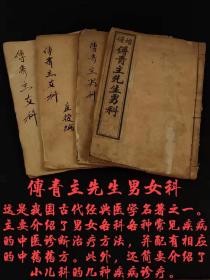 傅青主女科
傅青主女科
産後編
傅青主男科
傅青主先生男科
傅青主先生男女科
这是我国古代经典医学名著之一。
主要介绍了男女科各种常见疾病
的中医诊断治疗方法，并配有相应
的中药药方。此外，还简要介绍了
小儿科的几种疾病诊疗。